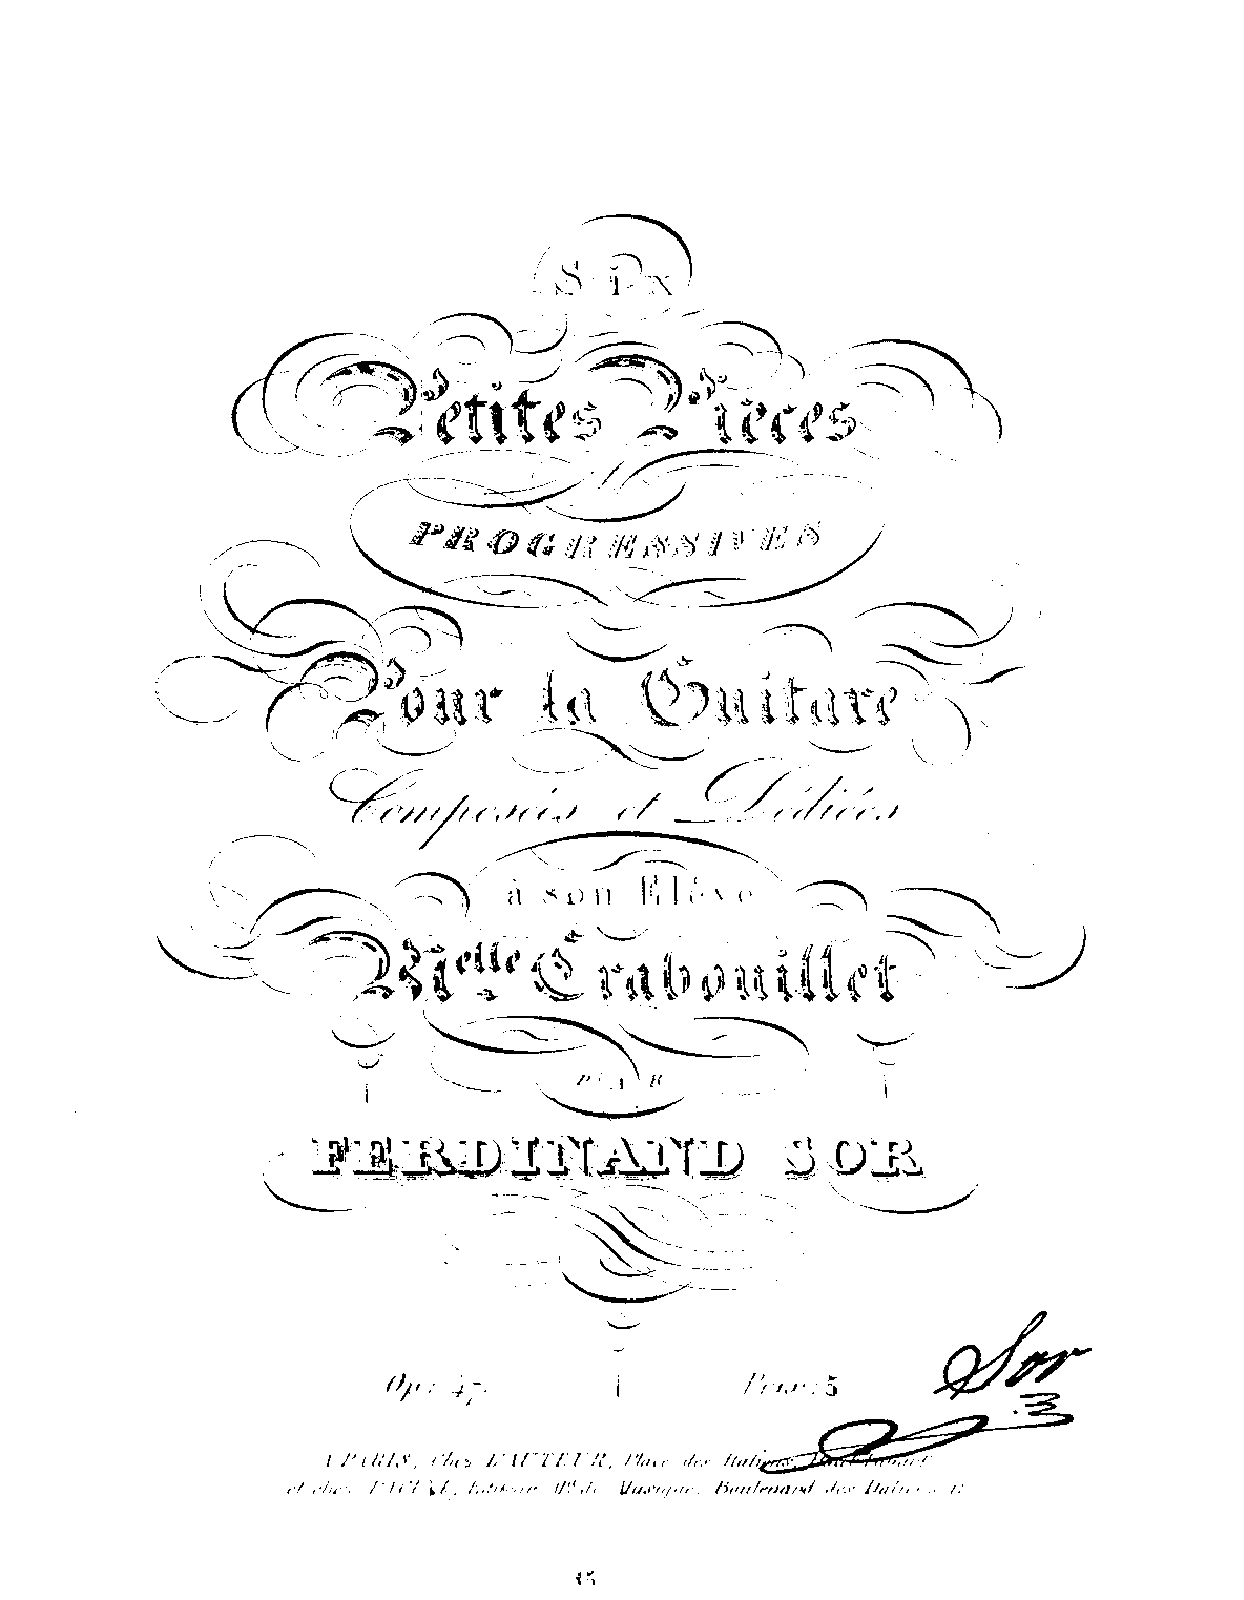 Six
Petites Pièces
PROGRESSIVES
Pour la Guitare
Composées et Dédiées
à son Elève
Melle Crabouillet
PAR
FERDINAND SOR
Op: 47. Prix: 5
Sor
A PARIS, Chez L'AUTEUR, Place des Italiens,
et chez PACINI, Editeur Md de Musique, Boulevard des Italiens